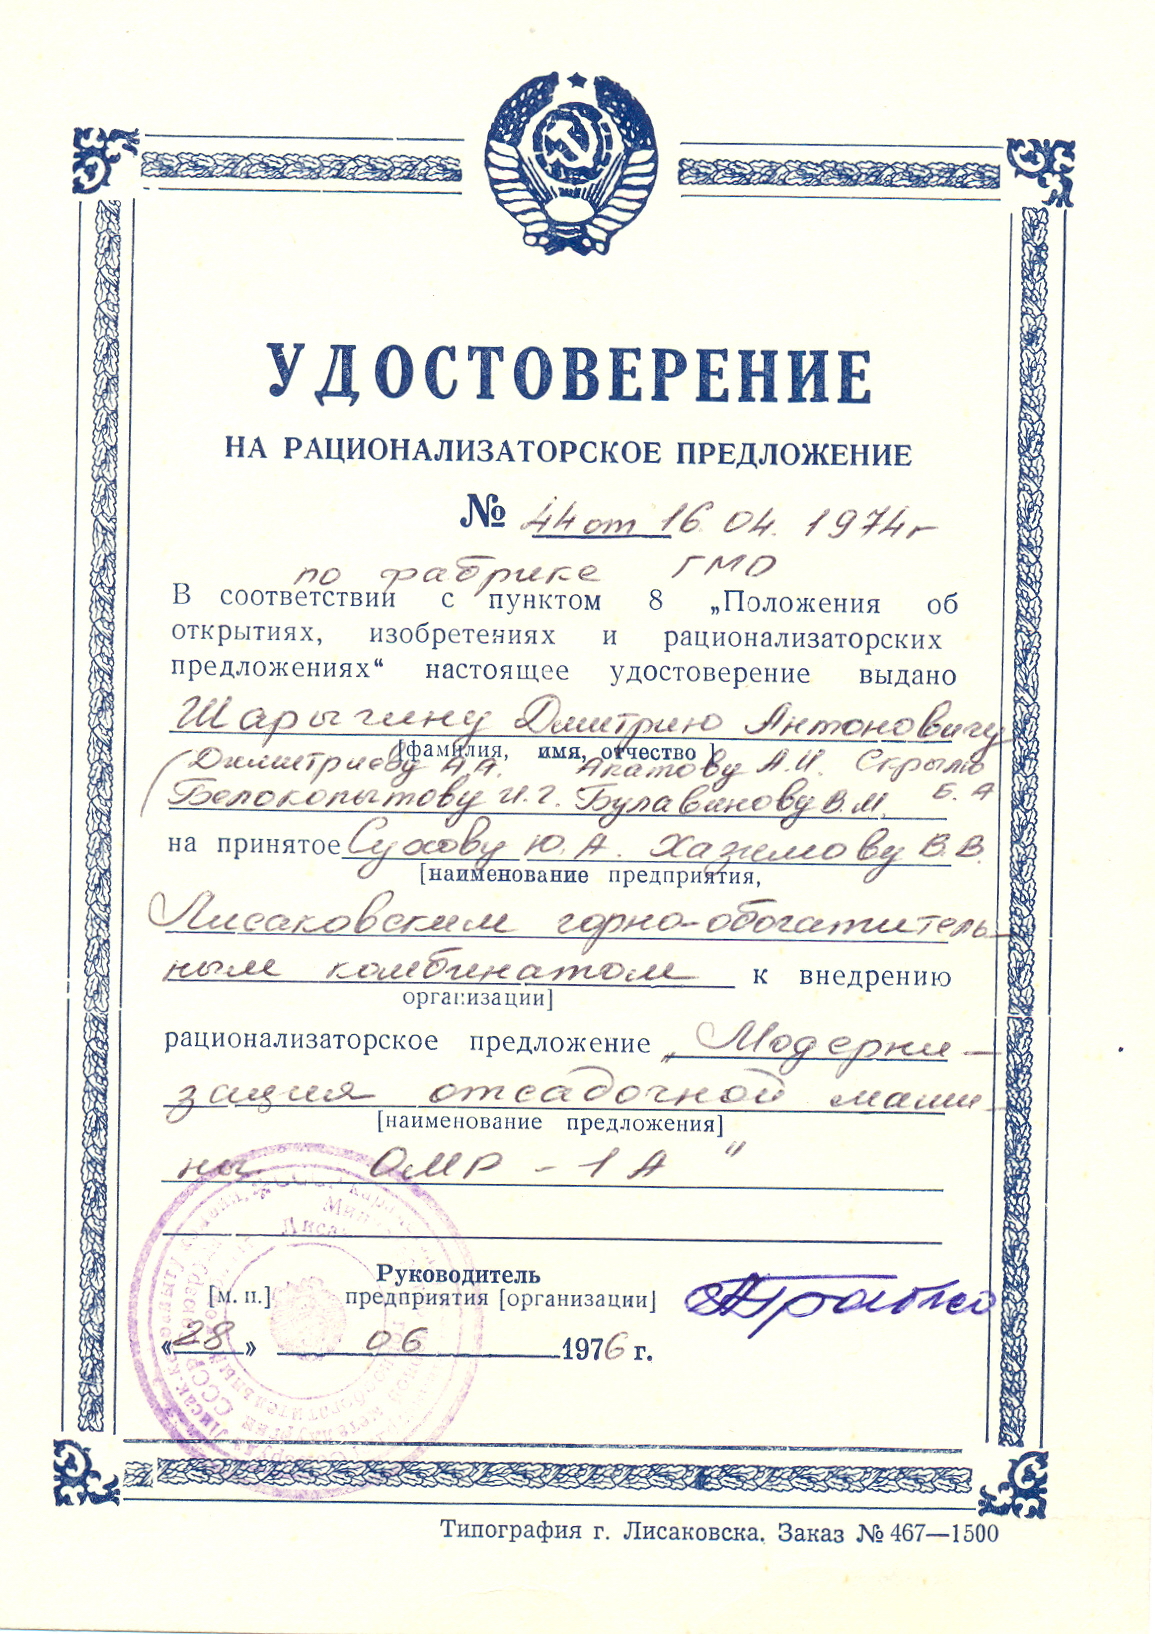 УДОСТОВЕРЕНИЕ
НА РАЦИОНАЛИЗАТОРСКОЕ ПРЕДЛОЖЕНИЕ
№ 44 от 16.04.1974г
по фабрике ГМО
В соответствии с пунктом 8 „Положения об
открытиях, изобретениях и рационализаторских
предложениях“ настоящее удостоверение выдано
Шарыгину Дмитрию Антоновичу
[фамилия, имя, отчество]
(Димитриеву А А. Акатову А.И. Скрылю
Б. А
Белокопытову И.Г. Булавинову В.М.
на принятое Сухову Ю.А. Хажемову В.В.
[наименование предприятия,
Лисаковским горно-обогатитель-
ным комбинатом к внедрению
организации]
рационализаторское предложение „Модерни-
зация отсадочной маши-
[наименование предложения]
ны ОМР-1А"
Руководитель
[м. п.] предприятия [организации]
«28» 06 1976 г.
Типография г. Лисаковска. Заказ № 467—1500